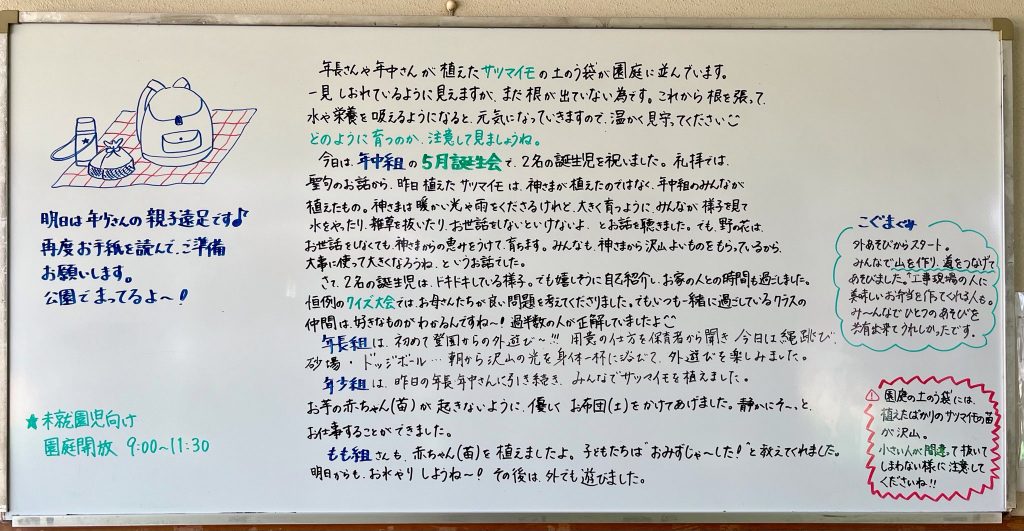 明日は年少さんの親子遠足です♪
再度お手紙を読んで、ご準備
お願いします。
公園でまってるよ〜!
★未就園児向け
園庭開放 9:00〜11:30
年長さんや年中さんが植えたサツマイモの土のう袋が園庭に並んでいます。
一見しおれているように見えますが、まだ根が出ていない為です。これから根を張って、
水や栄養を吸えるようになると、元気になっていきますので、温かく見守ってください
どのように育つのか、注意して見ましょうね。
今日は、年中組の5月誕生会で、2名の誕生児を祝いました。礼拝では、
聖句のお話から、昨日植えたサツマイモは、神さまが植えたのではなく、年中組のみんなが
植えたもの。神さまは暖かい光や雨をくださるけれど、大きく育つように、みんなが様子を見て
水をやったり、雑草を抜いたり、お世話をしないといけないよ、とお話を聴きました。でも、野の花は、
お世話をしなくても、神さまからの恵みをうけて、育ちます。みんなも、神さまから沢山よいものをもらっているから、
大事に使って大きくなろうね、というお話でした。
さて、2名の誕生児は、ドキドキしている様子。でも嬉しそうに自己紹介し、お家の人との時間も過ごしました。
恒例のクイズ大会では、お母さんたちが良い問題を考えてくださりました。でもいつも一緒に過ごしているクラスの
仲間は、好きなものがわかるんですね〜!過半数の人が正解していましたよ
年長組は、初めて登園からの外遊び〜!!! 用意の仕方を保育者から聞き 今日は、縄跳び、
砂場・ドッジボール…朝から沢山の光を身体一杯に浴びて、外遊びを楽しみました。
年少組は、昨日の年長年中さんに引き続き、みんなでサツマイモを植えました。
お芋の赤ちゃん(苗)が起きないように、優しくお布団(土)をかけてあげました。静かにそ〜っと、
お仕事することができました。
もも組さんも、赤ちゃん(苗)を植えましたよ。子どもたちは"おみずじゃ〜した!"と教えてくれました。
明日からも、お水やりしようね〜! その後は、外でも遊びました。
こぐまぐみ
外あそびからスタート。
みんなで山を作り、道をつなげて
あそびました。"工事現場の人に
美味しいお弁当を作ってくれる人も。
み〜んなでひとつのあそびを
共有出来てうれしかったです。
! 園庭の土のう袋には、
植えたばかりのサツマイモの苗
が沢山。
小さい人が間違って抜いて
しまわない様に注意して
くださいね!!